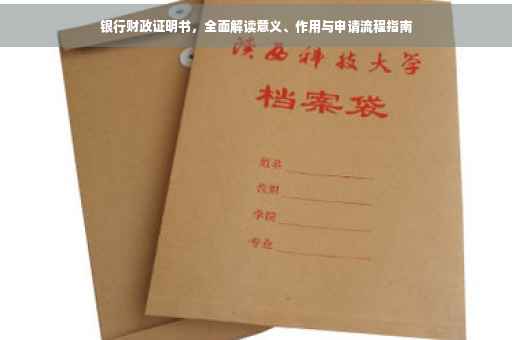 银行财政证明书，全面解读意义、作用与申请流程指南
陕西科技大学
档案袋
学院
专业